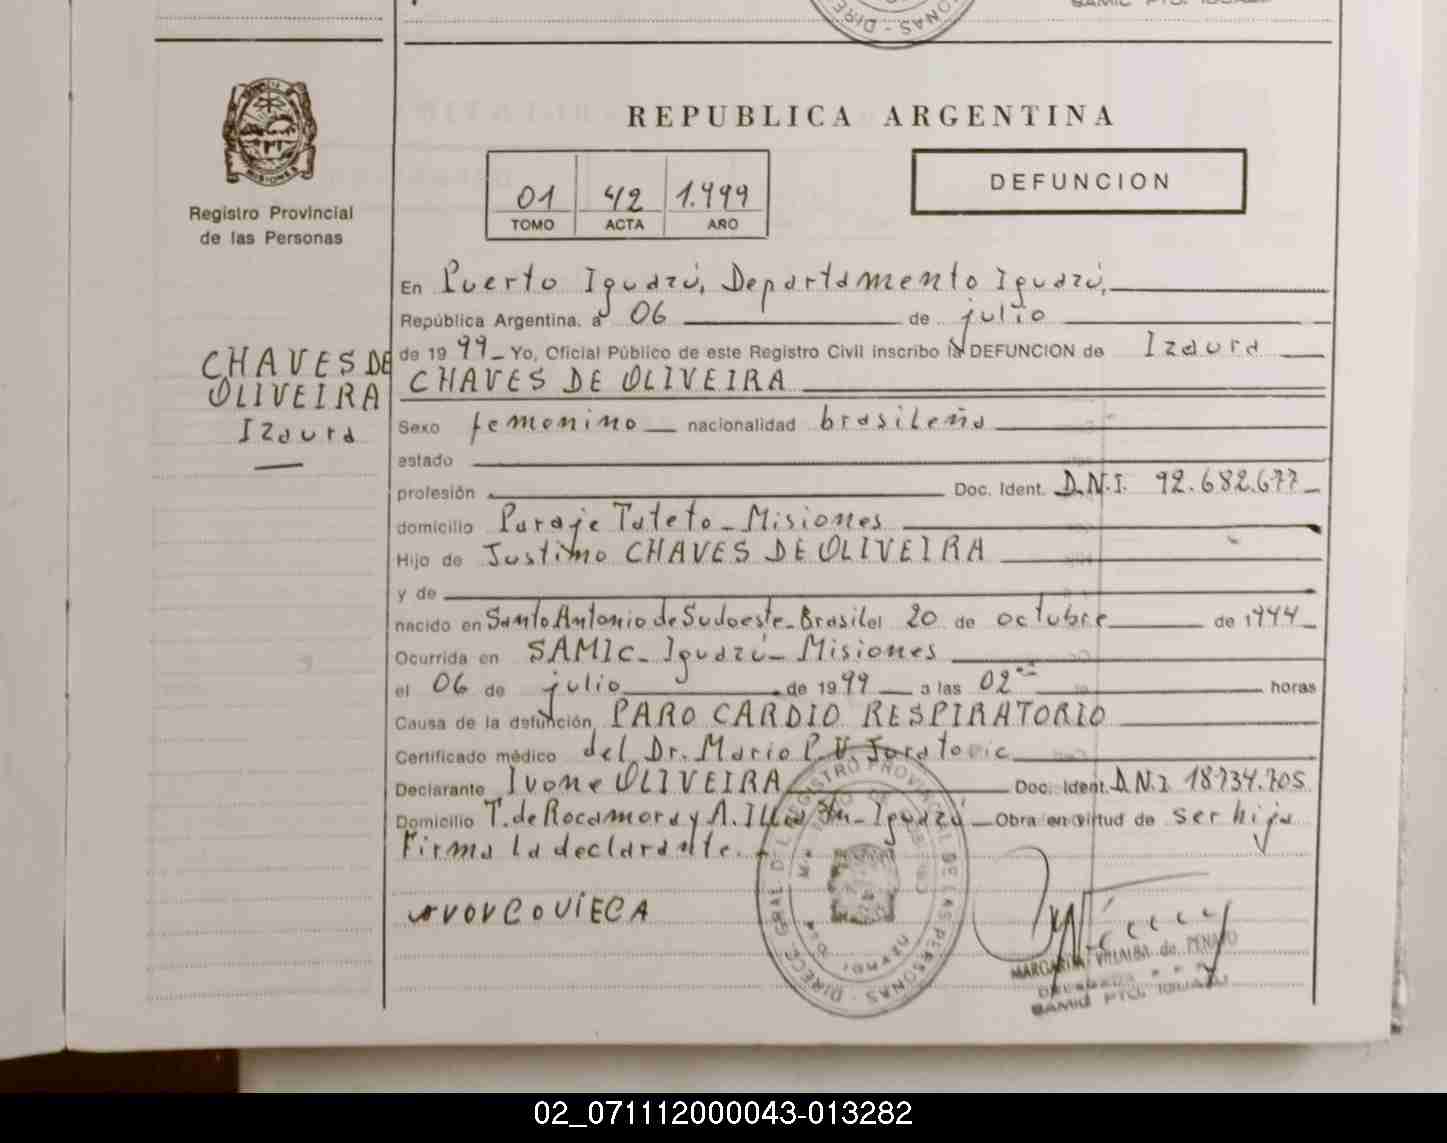 REPUBLICA ARGENTINA
DEFUNCION
01 42 1.999
TOMO ACTA AÑO
Registro Provincial
de las Personas
CHAVES DE
OLIVEIRA
Izaura
En Puerto Iguazú, Departamento Iguazú,
República Argentina, a 06 de julio
de 1999 Yo, Oficial Público de este Registro Civil inscribo la DEFUNCION de Izaura
CHAVES DE OLIVEIRA
Sexo femenino nacionalidad brasileña
estado
profesión Doc. Ident. D.N.I. 92.682.677
domicilio Paraje Tateto - Misiones
Hijo de Justimo CHAVES DE OLIVEIRA
y de
nacido en Santo Antonio de Sudoeste - Brasil el 20 de octubre de 1944
Ocurrida en SAMIC - Iguazú - Misiones
el 06 de julio de 1999 a las 02 horas
Causa de la defunción PARO CARDIO RESPIRATORIO
Certificado médico del Dr. Mario P. V. Joratovic
Declarante Ivone OLIVEIRA Doc. Ident. D.N.I 18.734.705
Domicilio T. de Rocamora y A. Illia S/n - Iguazú Obra en virtud de ser hija
Firma la declarante.
DIRECC. GRAL. DEL REGISTRO PROVINCIAL DE LAS PERSONAS
MARGARITA VILLALBA de PENAYO
DELEGADA
SAMIC PTO. IGUAZU
02_071112000043-013282